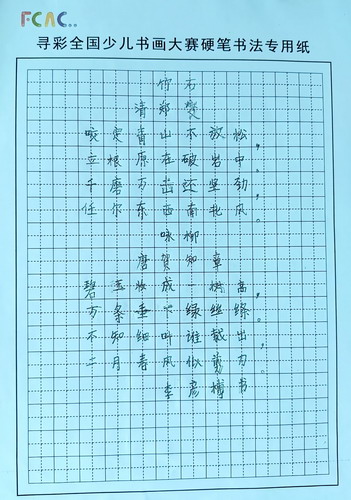 FCAC
寻彩全国少儿书画大赛硬笔书法专用纸
竹石
清郑燮
咬定青山不放松，
立根原在破岩中。
千磨万击还坚劲，
任尔东西南北风。
咏柳
唐贺知章
碧玉妆成一树高，
万条垂下绿丝绦。
不知细叶谁裁出，
二月春风似剪刀。
李彦樽书